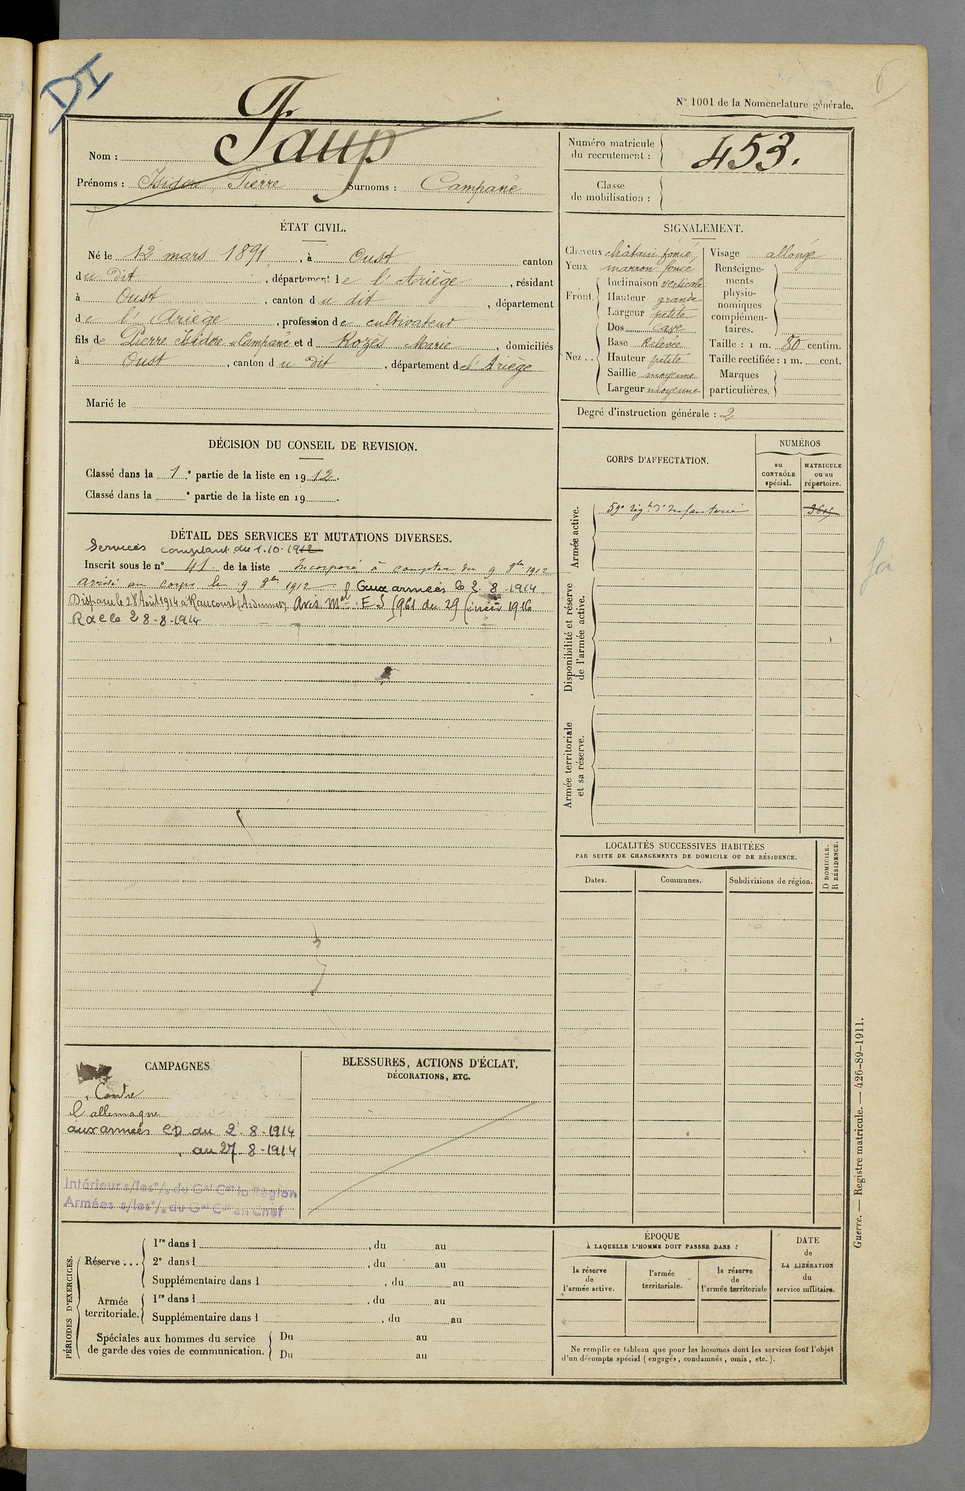 DI
6
N° 1001 de la Nomenclature générale.
Nom : Faup
Prénoms : Isidore, Pierre Surnoms : Campané
Numéro matricule du recrutement : 453.
Classe de mobilisation :
ÉTAT CIVIL.
Né le 12 mars 1891, à Oust canton
du dit, département de l'Ariège, résidant
à Oust, canton du dit, département
de l'Ariège, profession de cultivateur
fils de Pierre Isidore Campané et d Rozès Marie, domiciliés
à Oust, canton du dit, département de l'Ariège
Marié le
SIGNALEMENT.
Cheveux châtain foncé,
Yeux marron foncé
Front. Inclinaison verticale
Hauteur grande
Largeur petite
Nez... Dos cave
Base Relevée
Hauteur petite
Saillie moyenne
Largeur moyenne
Visage allongé
Renseignements physionomiques complémentaires.
Taille : 1 m. 80 centim.
Taille rectifiée : 1 m. cent.
Marques particulières.
Degré d'instruction générale : 2
DÉCISION DU CONSEIL DE REVISION.
Classé dans la 1e partie de la liste en 1912.
Classé dans la e partie de la liste en 19 .
CORPS D'AFFECTATION.
NUMÉROS
au CONTRÔLE spécial.
MATRICULE ou au répertoire.
Armée active.
59e rég.t d'Infanterie
Disponibilité et réserve de l'armée active.
Armée territoriale et sa réserve.
DÉTAIL DES SERVICES ET MUTATIONS DIVERSES.
Services comptant du 1.10.1912
Inscrit sous le n° 41 de la liste Incorporé à compter du 9 8bre 1912
arrivé au corps le 9 8bre 1912 aux armées le 2.8.1914.
Disparu le 28 Août 1914 à Raucourt (Ardennes) Avis Mel F S 961 du 29 1916
R d C le 28-8-1914
LOCALITÉS SUCCESSIVES HABITÉES
PAR SUITE DE CHANGEMENTS DE DOMICILE OU DE RÉSIDENCE.
Dates.
Communes.
Subdivisions de région.
D DOMICILE.
R RÉSIDENCE.
CAMPAGNES
Contre
l'allemagne
aux armées CD du 2-8-1914
au 27-8-1914
Intérieur s/les o/s du Gal Cdt la Région
Armées s/les o/s du Gal Cdt en Chef
BLESSURES, ACTIONS D'ÉCLAT,
DÉCORATIONS, ETC.
PÉRIODES D'EXERCICES.
Réserve... 1re dans l , du au
2e dans l , du au
Supplémentaire dans l , du au
Armée territoriale. 1re dans l , du au
Supplémentaire dans l , du au
Spéciales aux hommes du service de garde des voies de communication. Du au
Du au
ÉPOQUE
À LAQUELLE L'HOMME DOIT PASSER DANS :
la réserve de l'armée active.
l'armée territoriale.
la réserve de l'armée territoriale
DATE de LA LIBÉRATION du service militaire.
Ne remplir ce tableau que pour les hommes dont les services font l'objet
d'un décompte spécial (engagés, condamnés, omis, etc.).
Guerre. — Registre matricule. — 426-89-1911.